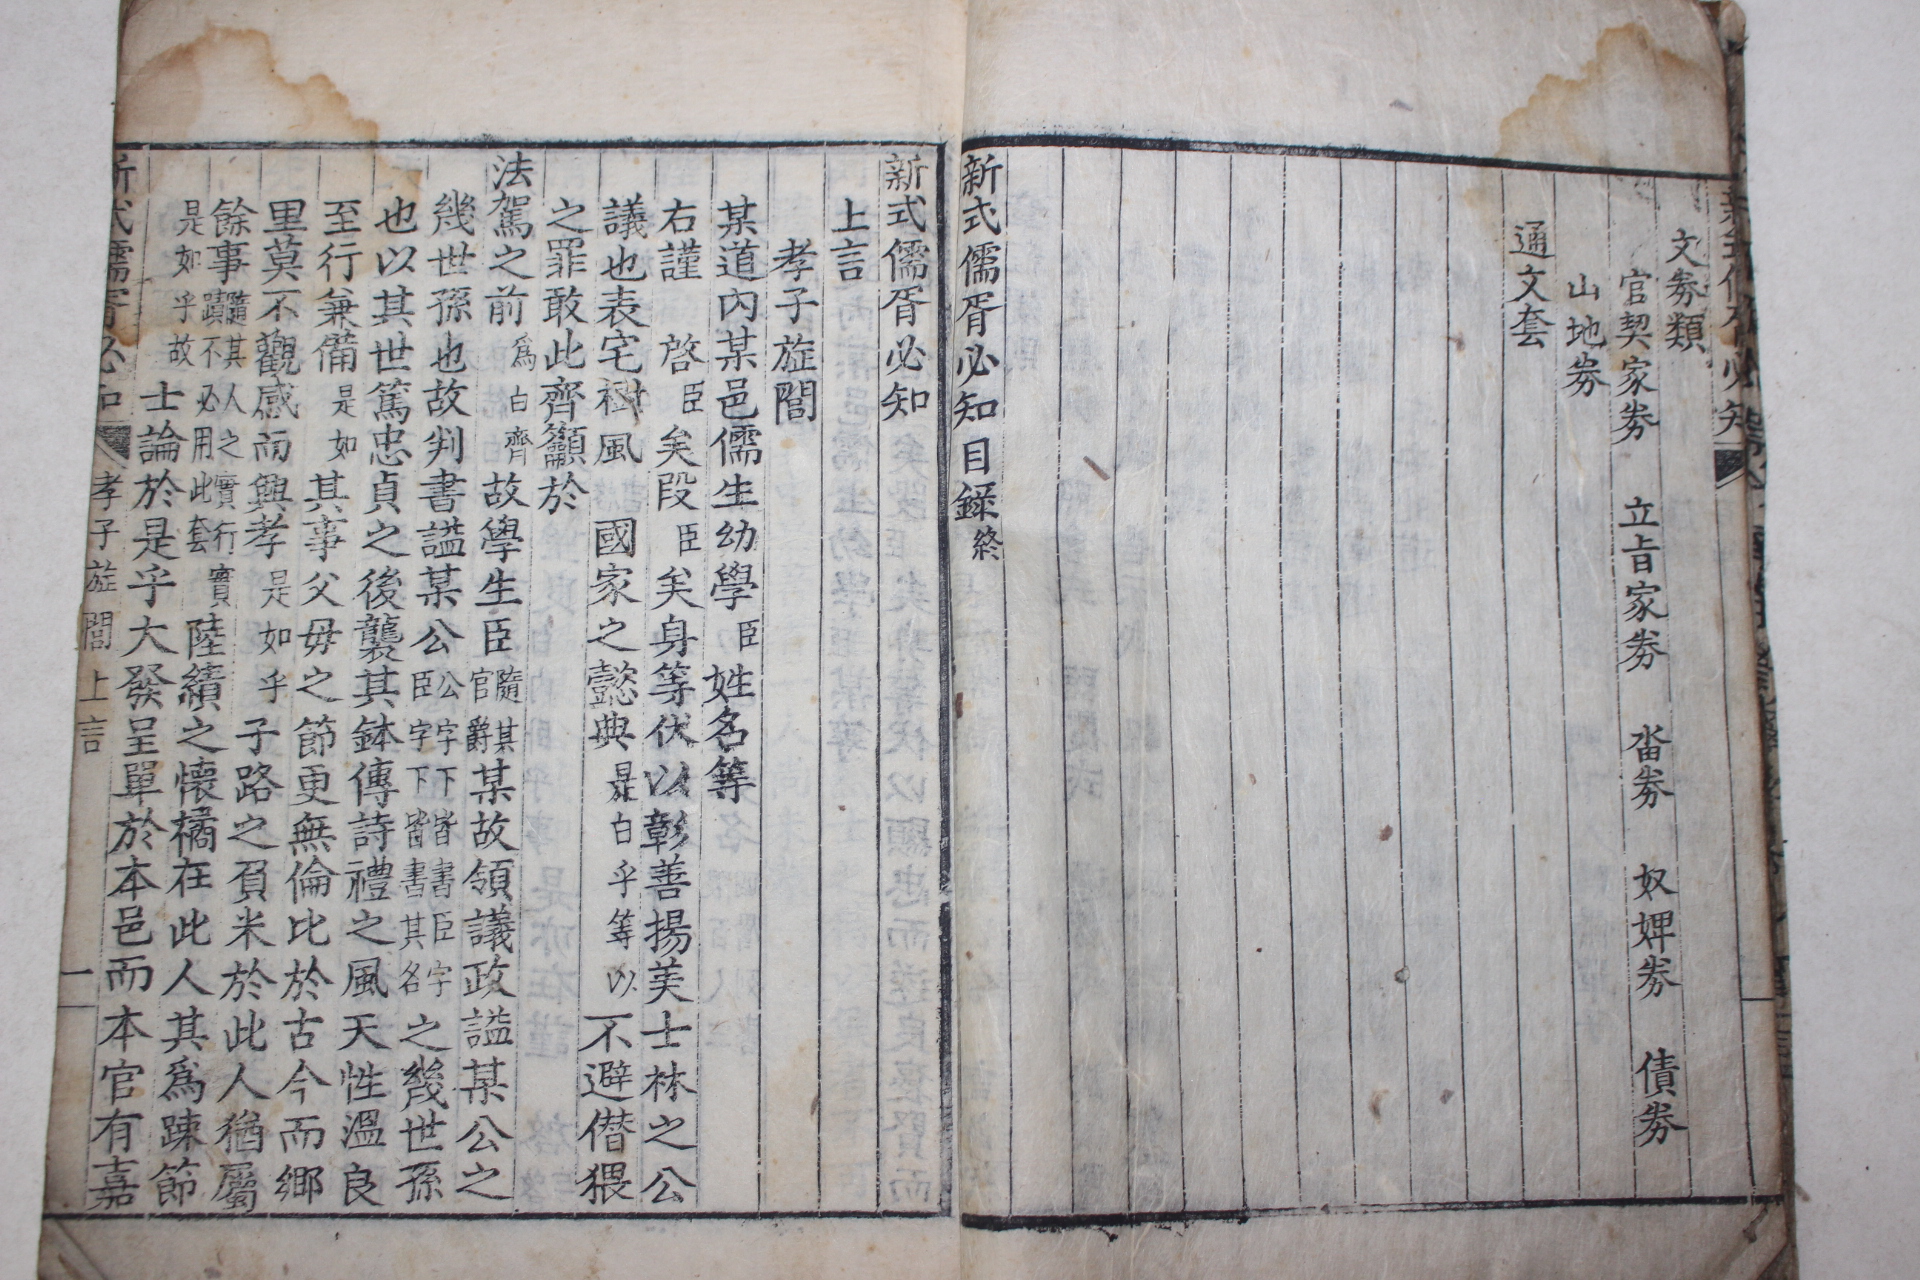 文劵類
官契家劵 立旨家劵 畓劵 奴婢劵 債劵
山地劵
通文套
新式儒胥必知目録終
新式儒胥必知
上言
孝子旌閭
某道內某邑儒生幼學臣姓名等
右謹 啓臣矣段臣矣身等伏以彰善揚美士林之公
議也表宅樹風 國家之懿典是白乎等以不避僭猥
之罪敢此齊籲於
法駕之前爲白齊故學生臣隨其官爵某故領議政謚某公之
幾世孫也故判書謚某公公字下皆書臣字臣字下皆書其名之幾世孫
也以其世篤忠貞之後襲其鉢傳詩禮之風天性溫良
至行兼備是如其事父母之節更無倫比於古今而鄉
里莫不觀感而興孝是如乎子路之負米於此人猶屬
餘事隨其人之實行實蹟不必用此套陸績之懷橘在此人其爲踈節
是如乎故士論於是乎大發呈單於本邑而本官有嘉
新式儒胥必知 孝子旌閭上言 一